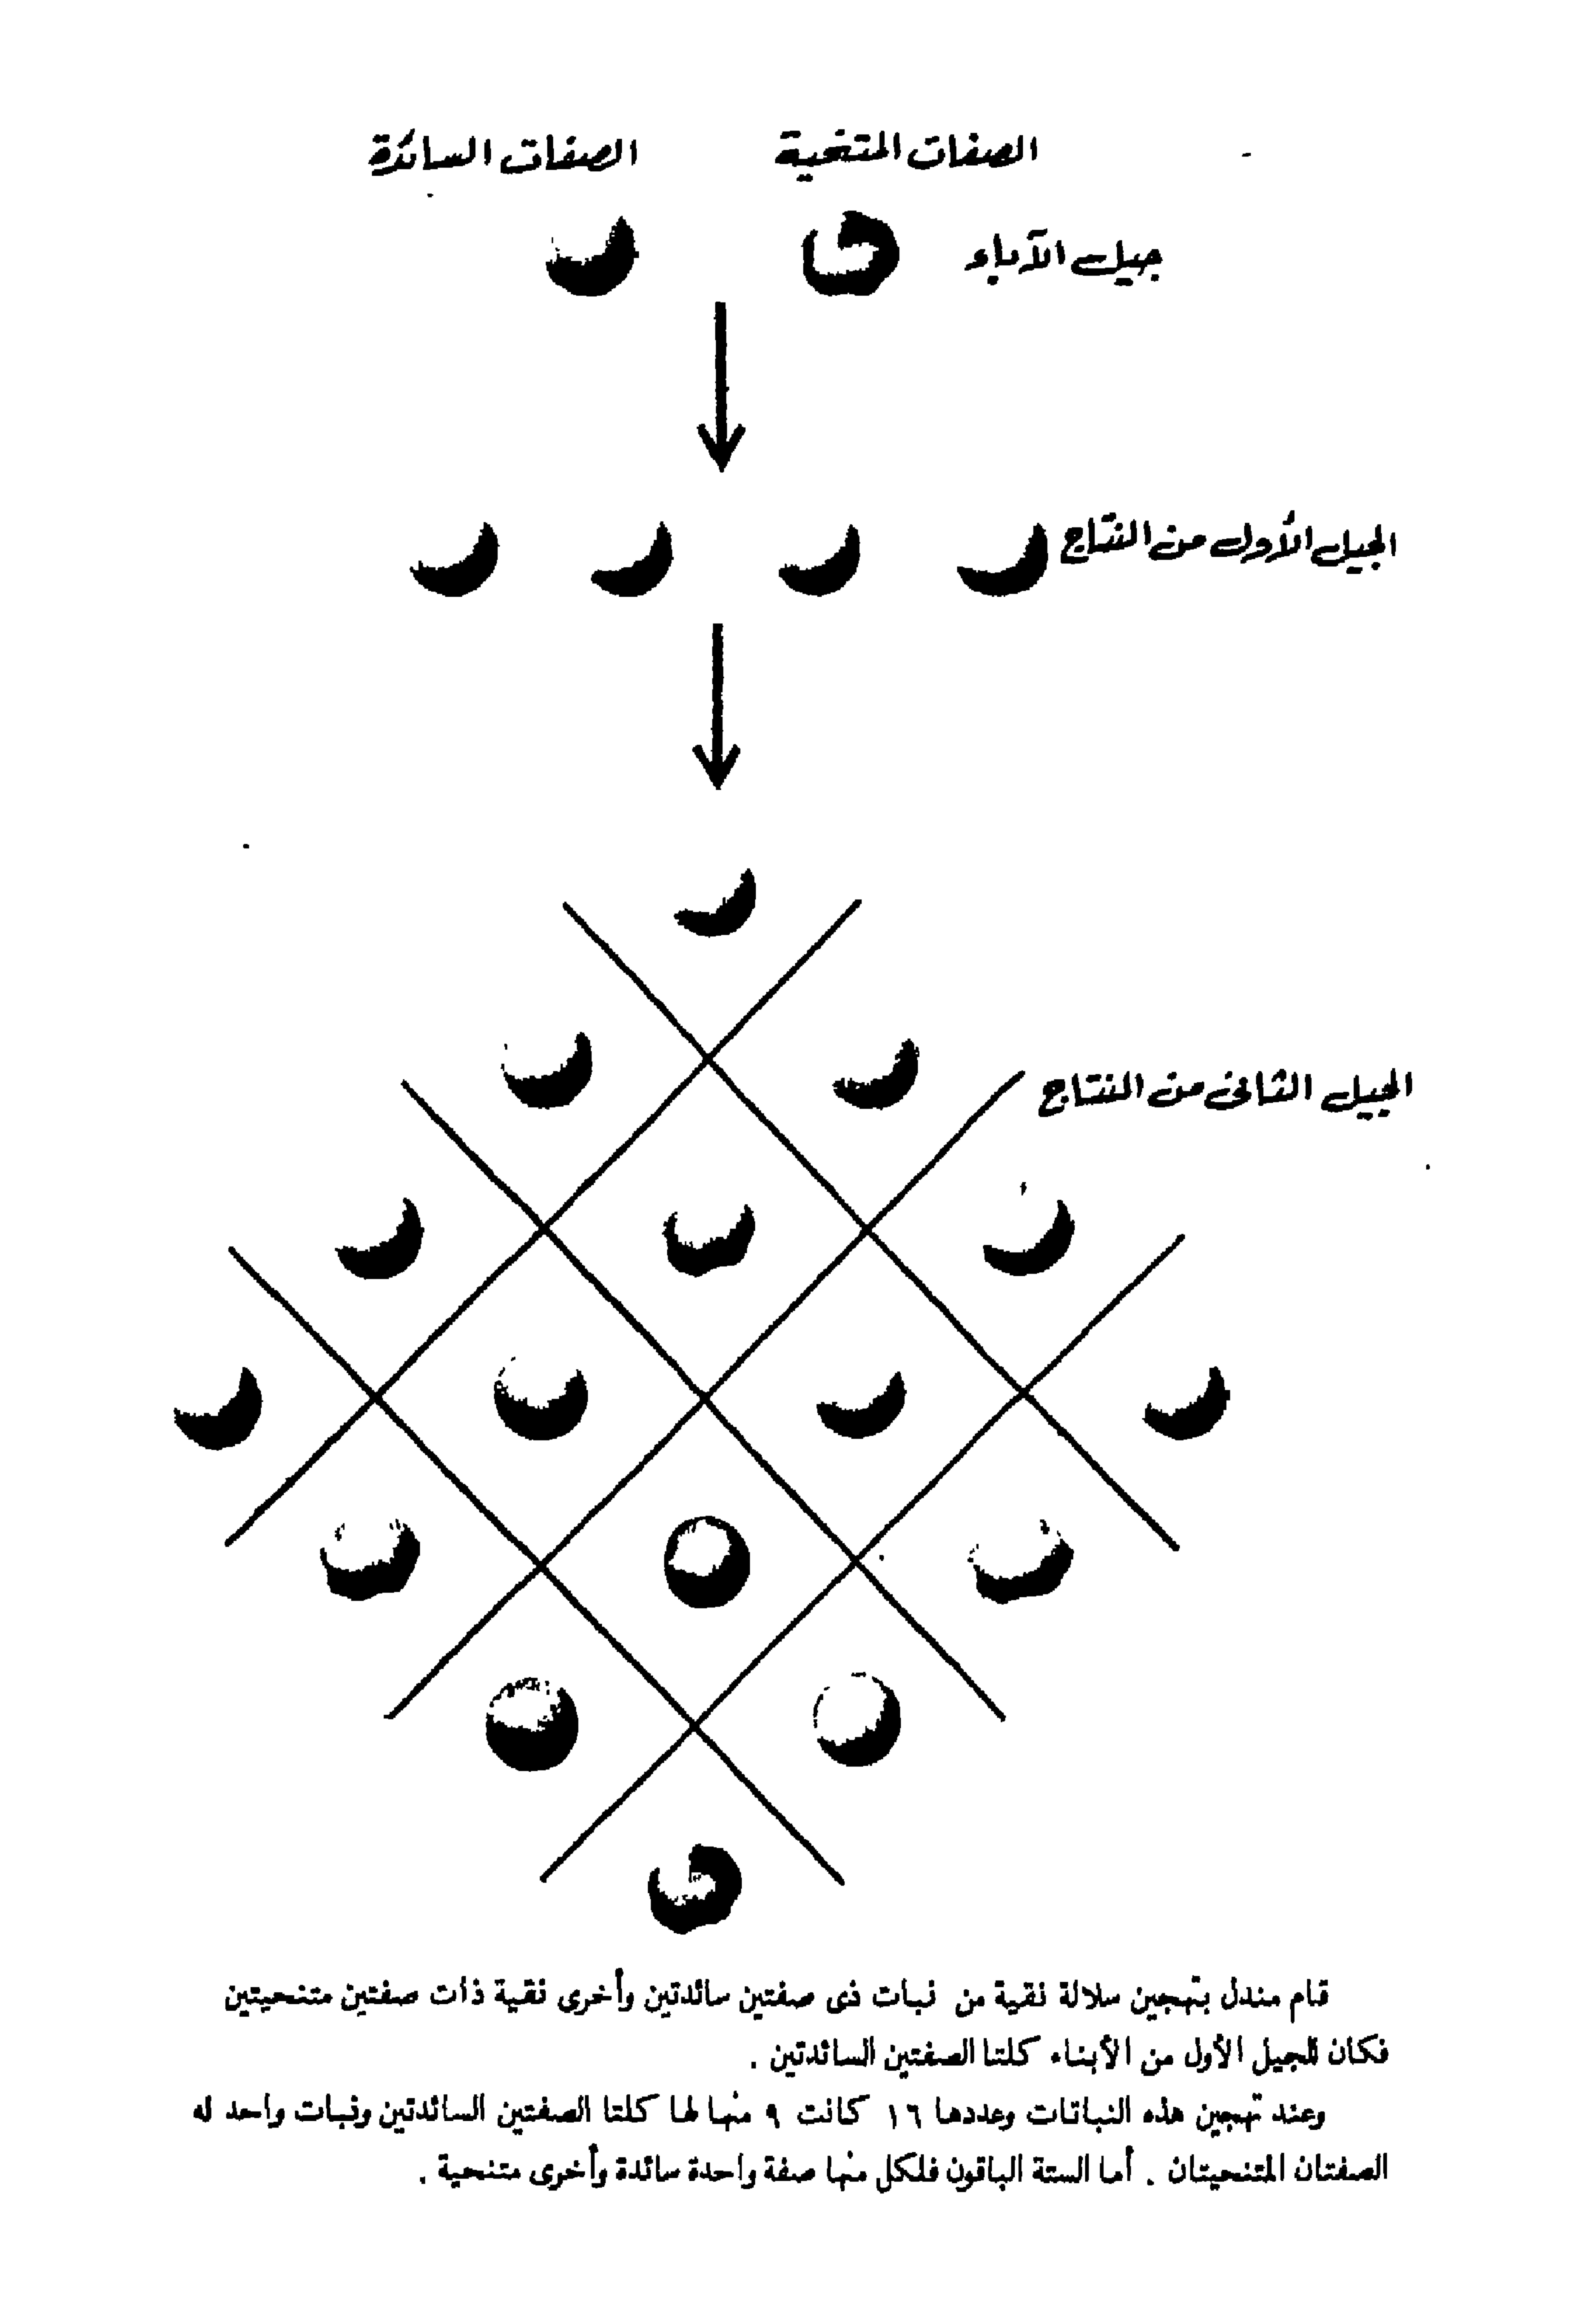 الصفات المتنحية
الصفات السائدة
جيل الآباء
الجيل الأول من النتاج
الجيل الثانى من النتاج
قام مندل بتهجين سلالة نقية من نبات ذى صفتين سائدتين وأخرى نقية ذات صفتين متنحيتين
فكان للجيل الأول من الأبناء كلتا الصفتين السائدتين .
وعند تهجين هذه النباتات وعددها ١٦ كانت ٩ منها لها كلتا الصفتين السائدتين ونبات واحد له
الصفتان المتنحيتان . أما الستة الباقون فلكل منها صفة واحدة سائدة وأخرى متنحية .